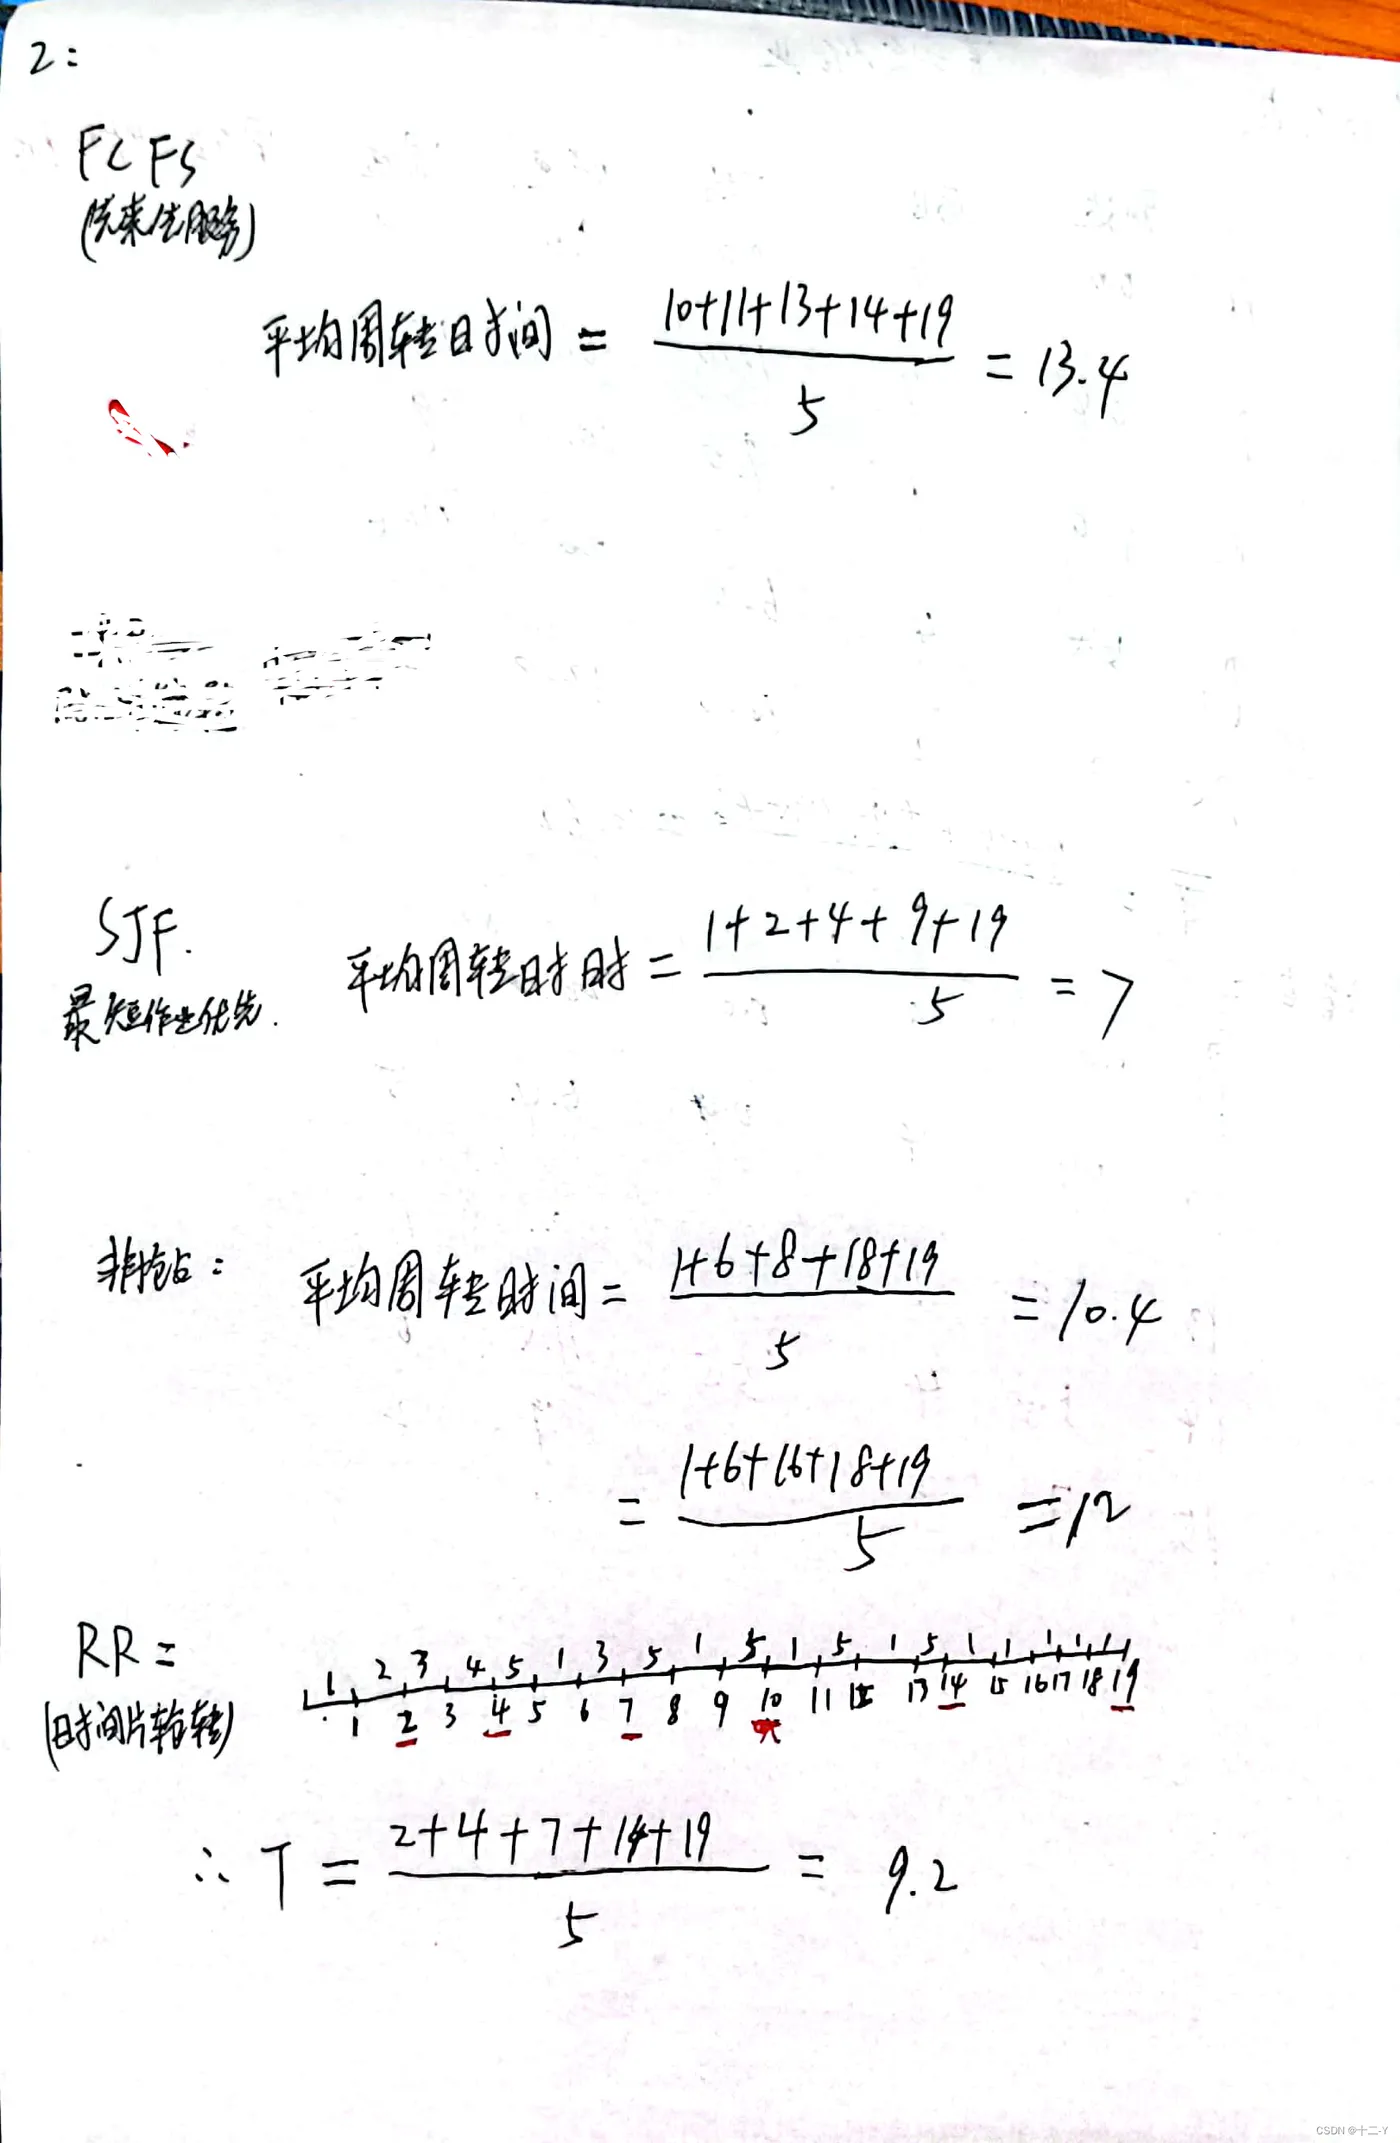 2:
FCFS
(先来先服务)
平均周转时间 = 10+11+13+14+19 / 5 = 13.4
SJF.
最短作业优先.
平均周转时时 = 1+2+4+9+19 / 5 = 7
非抢占: 平均周转时间 = 1+6+8+18+19 / 5 = 10.4
= 1+6+16+18+19 / 5 = 12
RR =
(时间片轮转)
1 2 3 4 5 1 3 5 1 5 1 5 1 5 1 1 1 1 1
1 2 3 4 5 6 7 8 9 10 11 12 13 14 15 16 17 18 19
∴ T = 2+4+7+14+19 / 5 = 9.2
CSDN @十二-Y